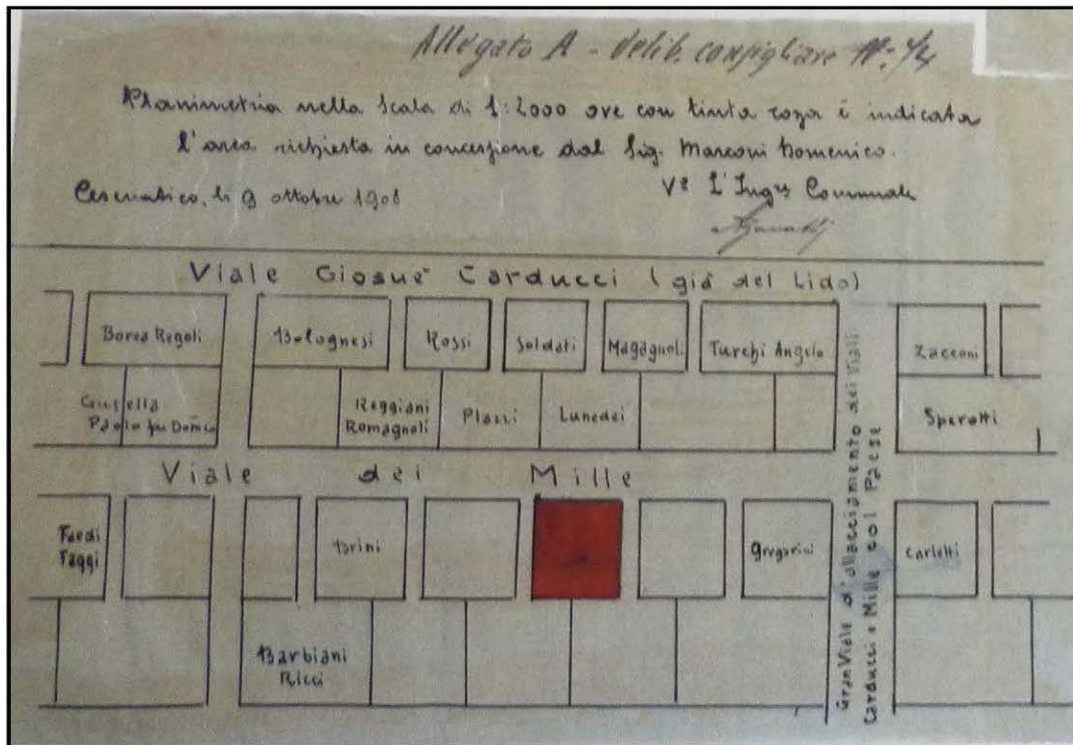 Allegato A - delib. consigliare N: 4/4
Planimetria nella scala di 1:2000 ove con tinta rossa è indicata
l'area richiesta in concessione dal Sig. Marconi Domenico.
Cesenatico, li 9 ottobre 1908
Vº L'Ingre Comunale
Viale Giosuè Carducci (già del Lido)
Borea Regoli
Bolognesi
Rossi
Soldati
Magagnoli
Turchi Angelo
Zacconi
Paolo fu Domco
Reggiani
Romagnoli
Plazzi
Lunedei
Sperotti
Viale dei Mille
Faedi
Faggi
Brini
Gregorini
Carletti
Barbiani
Ricci
Gran Viale d'allacciamento dei Viali
Carducci e Mille col Paese